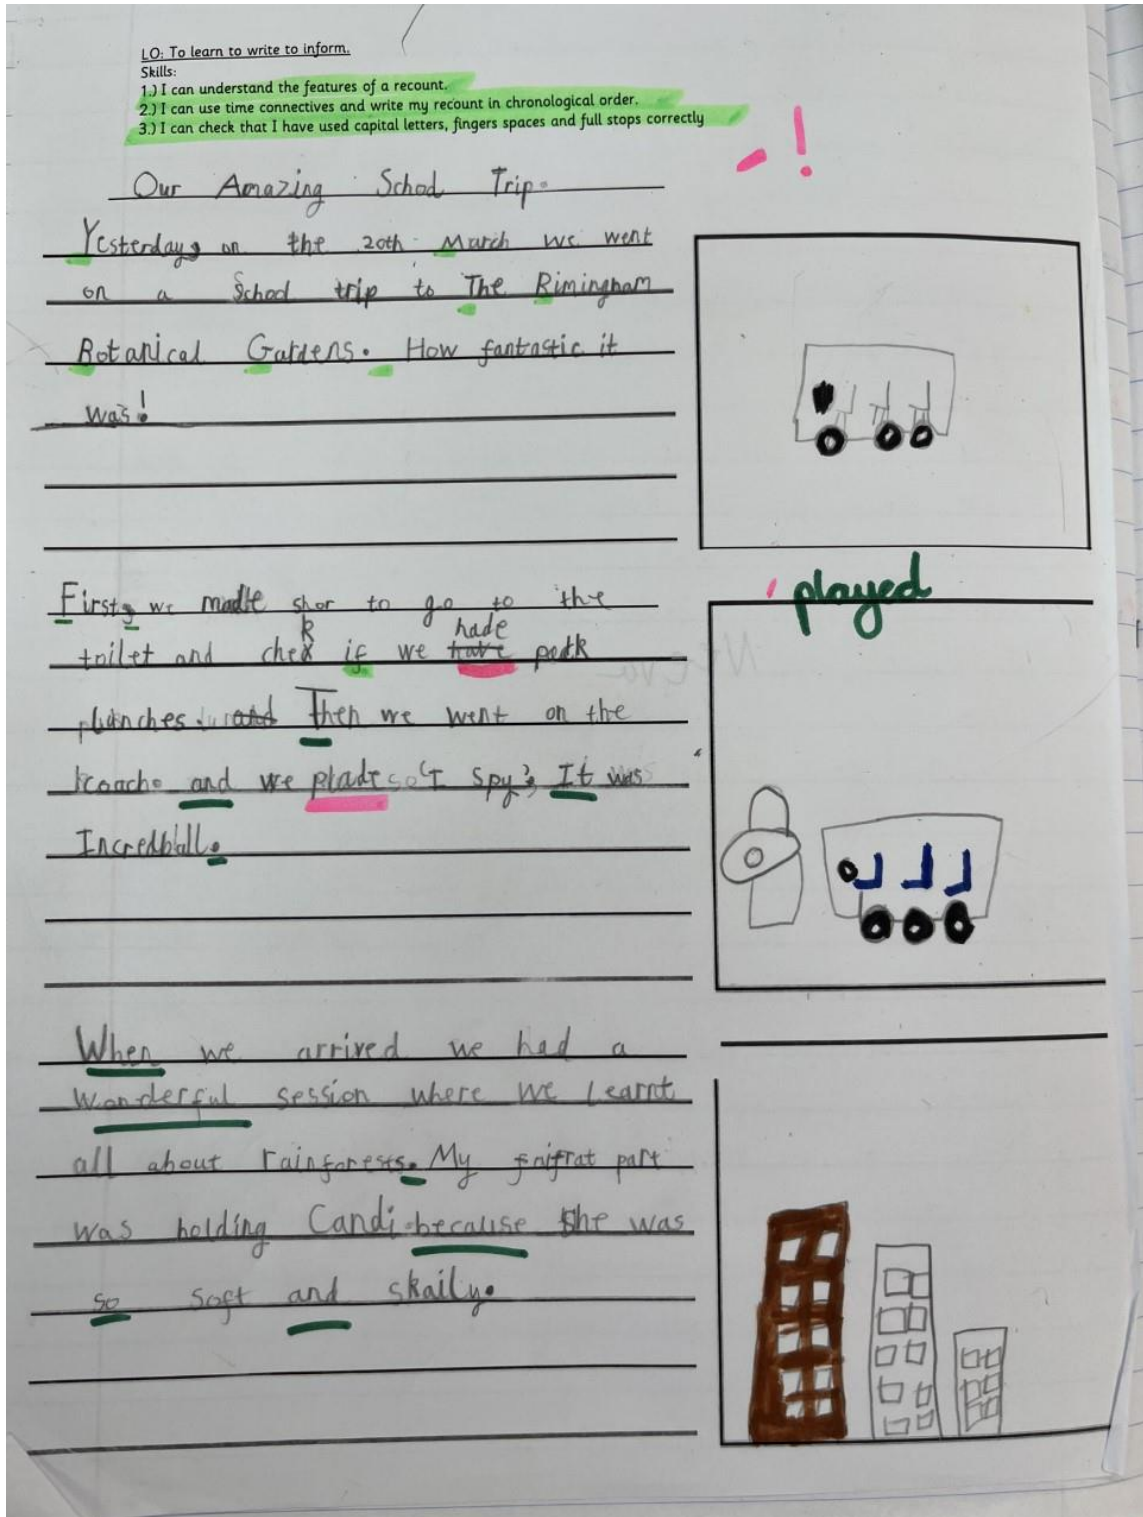 LO: To learn to write to inform.
Skills:
1.) I can understand the features of a recount.
2.) I can use time connectives and write my recount in chronological order.
3.) I can check that I have used capital letters, fingers spaces and full stops correctly
- !
Our Amazing School Trip.
Yesterday, on the 20th March we went
on a School trip to The Bimingham
Botanical Gardens. How fantastic it
was!
played
First, we made shor to go to the
toilet and chek if we hade pack
lunches. Then we went on the
coach. and we plade 'I spy', It was
Incredball.
When we arrived we had a
wonderful session where we learnt
all about rainforests. My fnifrat part
was holding Candi because she was
so soft and skaily.